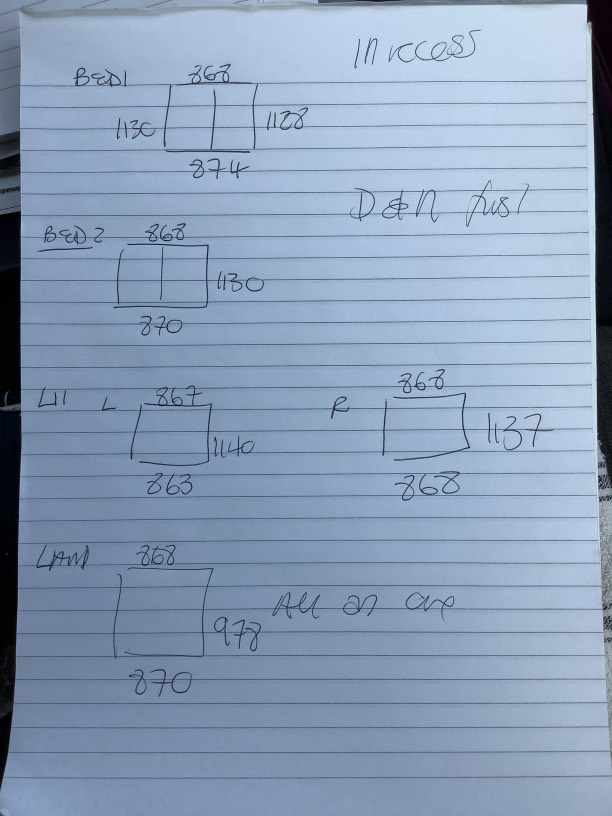 In rccess
BED1 868
1130 1128
874
D & N fus1
BED2 868
1130
870
LI1 L 867 R 868
1140 1137
863 868
LAN1 868
978 All on one
870